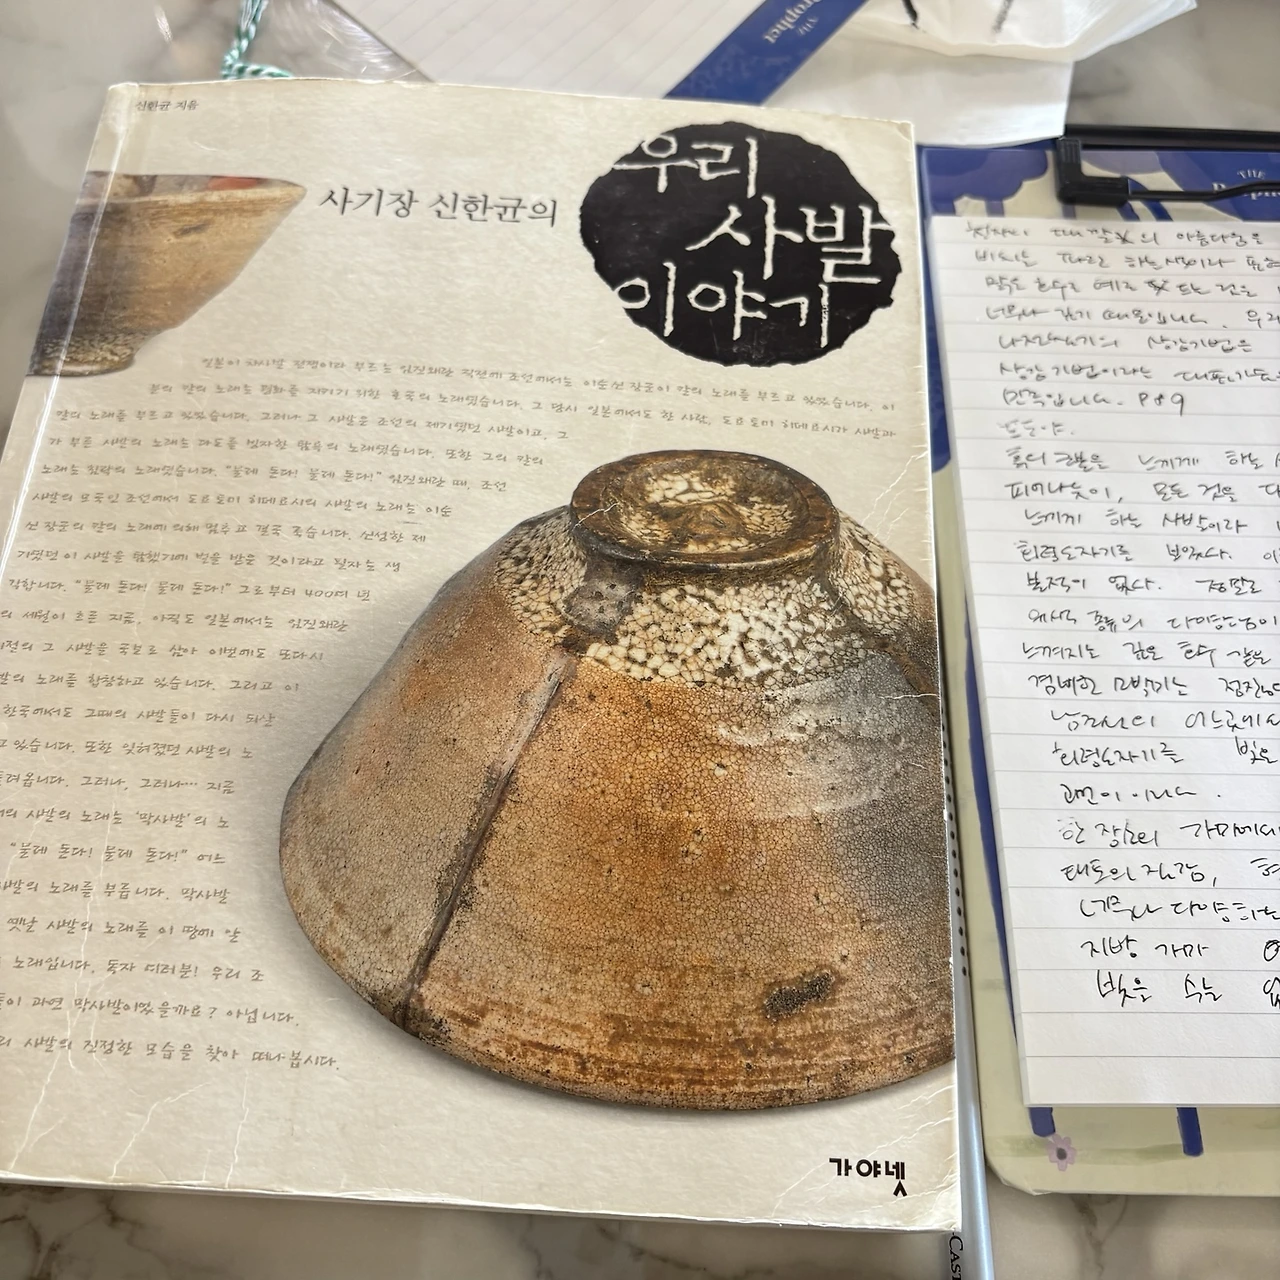 THE
Prophet
신한균 지음
사기장 신한균의
우리
사발
이야기
일본이 찻사발 전쟁이라 부르는 임진왜란 직전에 조선에서는 이순신 장군이 칼의 노래를 부르고 있었습니다. 이
분의 칼의 노래는 평화를 지키기 위한 호국의 노래였습니다. 그 당시 일본에서도 한 사람, 도요토미 히데요시가 사발과
칼의 노래를 부르고 있었습니다. 그러나 그 사발은 조선의 제기였던 사발이고, 그
가 부른 사발의 노래는 다도를 빙자한 탐욕의 노래였습니다. 또한 그의 칼의
노래는 침략의 노래였습니다. "물레 돈다! 물레 돈다!" 임진왜란 때, 조선
사발의 모국인 조선에서 도요토미 히데요시의 사발의 노래는 이순
신 장군의 칼의 노래에 의해 멈추고 결국 죽습니다. 신성한 제
기였던 이 사발을 탐했기에 벌을 받은 것이라고 필자는 생
각합니다. "물레 돈다! 물레 돈다!" 그로부터 400여 년
의 세월이 흐른 지금, 아직도 일본에서는 임진왜란
시절의 그 사발을 국보로 삼아 이번에도 또다시
발의 노래를 합창하고 있습니다. 그리고 이
한국에서도 그때의 사발들이 다시 되살
고 있습니다. 또한 잊혀졌던 사발의 노
려옵니다. 그러나, 그러나… 지금
의 사발의 노래는 '막사발'의 노
"물레 돈다! 물레 돈다!" 어느
사발의 노래를 부릅니다. 막사발
옛날 사발의 노래를 이 땅에 알
노래입니다. 독자 여러분! 우리 조
들이 과연 막사발이었을까요? 아닙니다.
리 사발의 진정한 모습을 찾아 떠나봅시다.
가야넷
THE
의 아름다움은
비시는 파란 하늘색이라
맑은 호수로 예로 뜨는 것을
너무나 깊기 때문입니다. 우리
상감기법은
상감기법이라는
민족입니다. P89
흙의 느끼게 하는
피어나듯이, 모든 것을
느끼게 하는 사발이라
회령도자기를 보았다.
본적이 없다. 정말로
느껴지는 깊은 호수 같은
어느곳에서
회령도자기를 빚은
한 장소의 가마에서
태토의 질감,
너무나 다양하
지방 가마
빚을 수는
CAST